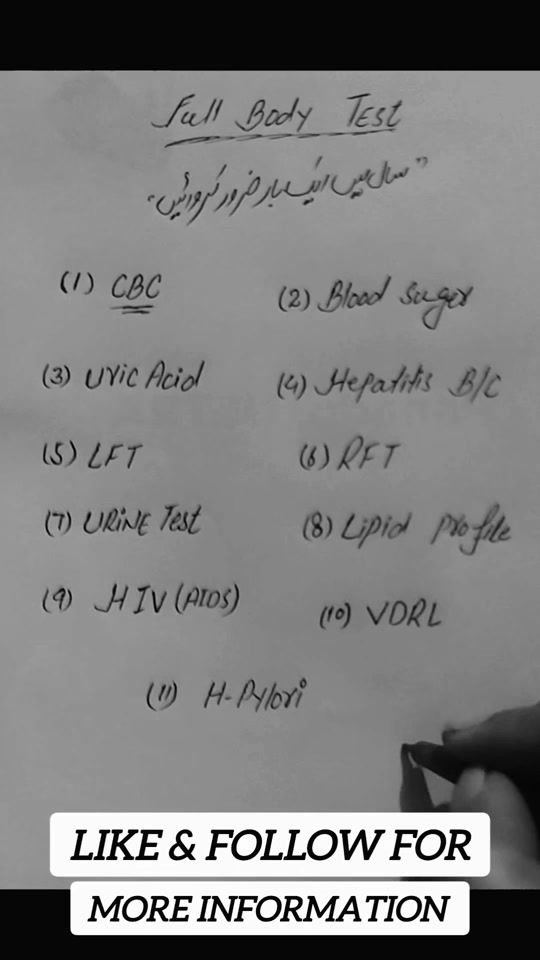 Full Body Test
"سال میں ایک بار ضرور کروائیں"
(1) CBC
(2) Blood Suger
(3) Uric Acid
(4) Hepatitis B/C
(5) LFT
(6) RFT
(7) URiNE Test
(8) Lipid Profile
(9) HIV (AIDS)
(10) VDRL
(11) H-Pylori
LIKE & FOLLOW FOR
MORE INFORMATION